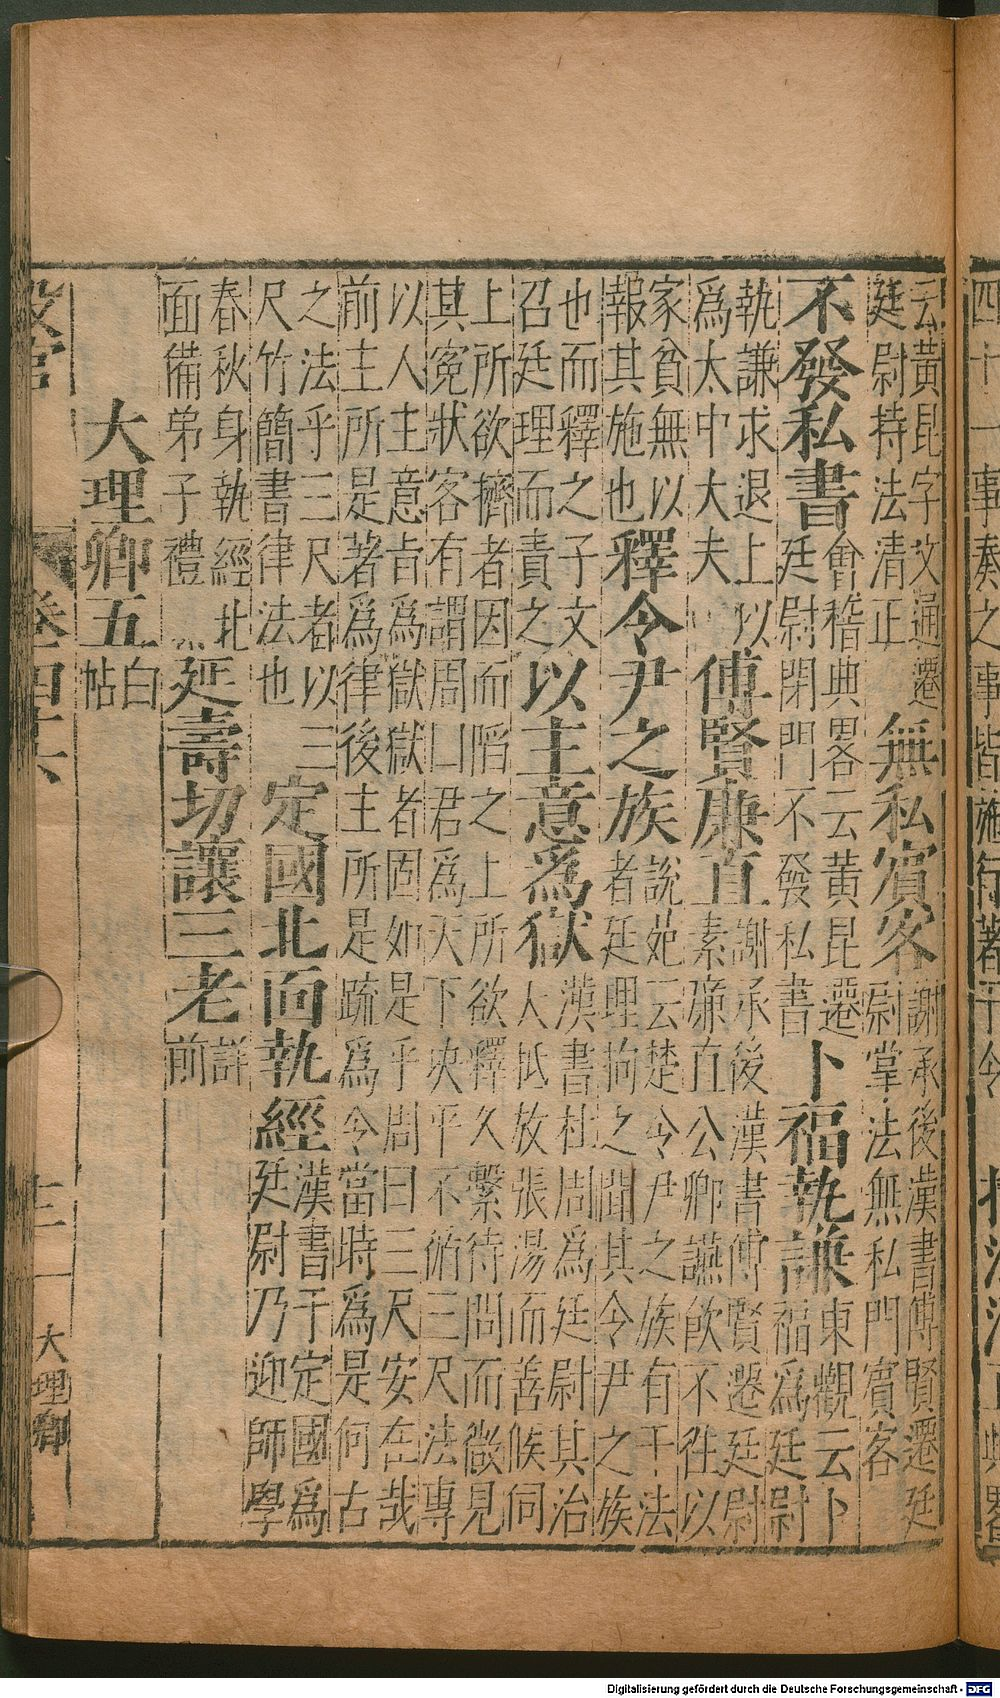 四十一事奏之事皆施行著于令
云黃昆字文通遷
廷尉持法清正
無私賓客
謝承後漢書傅賢遷廷
尉掌法無私門賓客
不發私書
會稽典畧云黃昆遷
廷尉閉門不發私書
卜福執謙
東觀云卜
福爲廷尉
執謙求退上以
爲太中大夫
傅賢廉直
謝承後漢書傅賢遷廷尉
素廉直公卿讌飲不往以
家貧無以
報其施也
釋令尹之族
說苑云楚令尹之族有干法
者廷理拘之聞其令尹之族
也而釋之子文
召廷理而責之
以主意爲獄
漢書杜周爲廷尉其治
人抵放張湯而善候伺
上所欲擠者因而陷之上所欲釋久繫待問而微見
其寃狀客有謂周曰君爲天下決平不循三尺法專
以人主意旨爲獄獄者固如是乎周曰三尺安在哉
前主所是著爲律後主所是疏爲令當時爲是何古
之法乎三尺者以三
尺竹簡書律法也
定國北面執經
漢書于定國爲
廷尉乃迎師學
春秋身執經北
面備弟子禮
延壽切讓三老
詳
前
大理卿五
白
帖
設官
卷四十六
大理卿
Digitalisierung gefördert durch die Deutsche Forschungsgemeinschaft - DFG